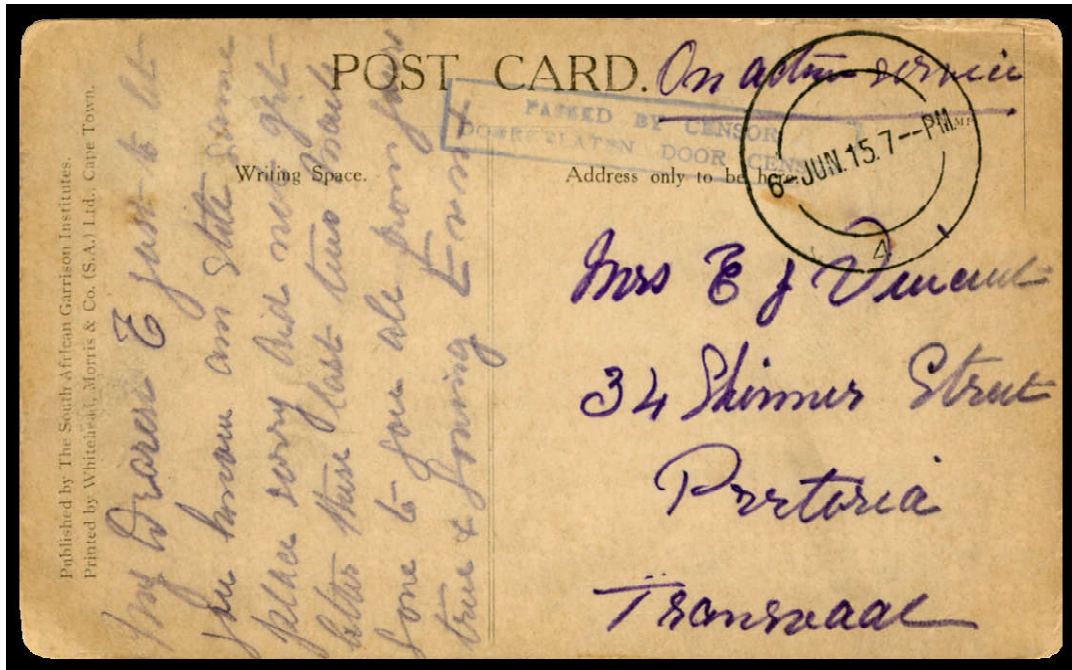 POST CARD.
On active service
PASSED BY CENSOR
DOORGELATEN DOOR CENSOR
6-JUN.15.7--PM
4
Writing Space.
Address only to be here.
Published by The South African Garrison Institutes.
Printed by Whitehead, Morris & Co. (S.A.) Ltd., Cape Town.
My Dearest E just to let
you know am still same
place sorry did not get
letter these last two mails
love to you all from your
true & loving Ernest
Mrs E J Vincent
34 Skinner Street
Pretoria
Transvaal